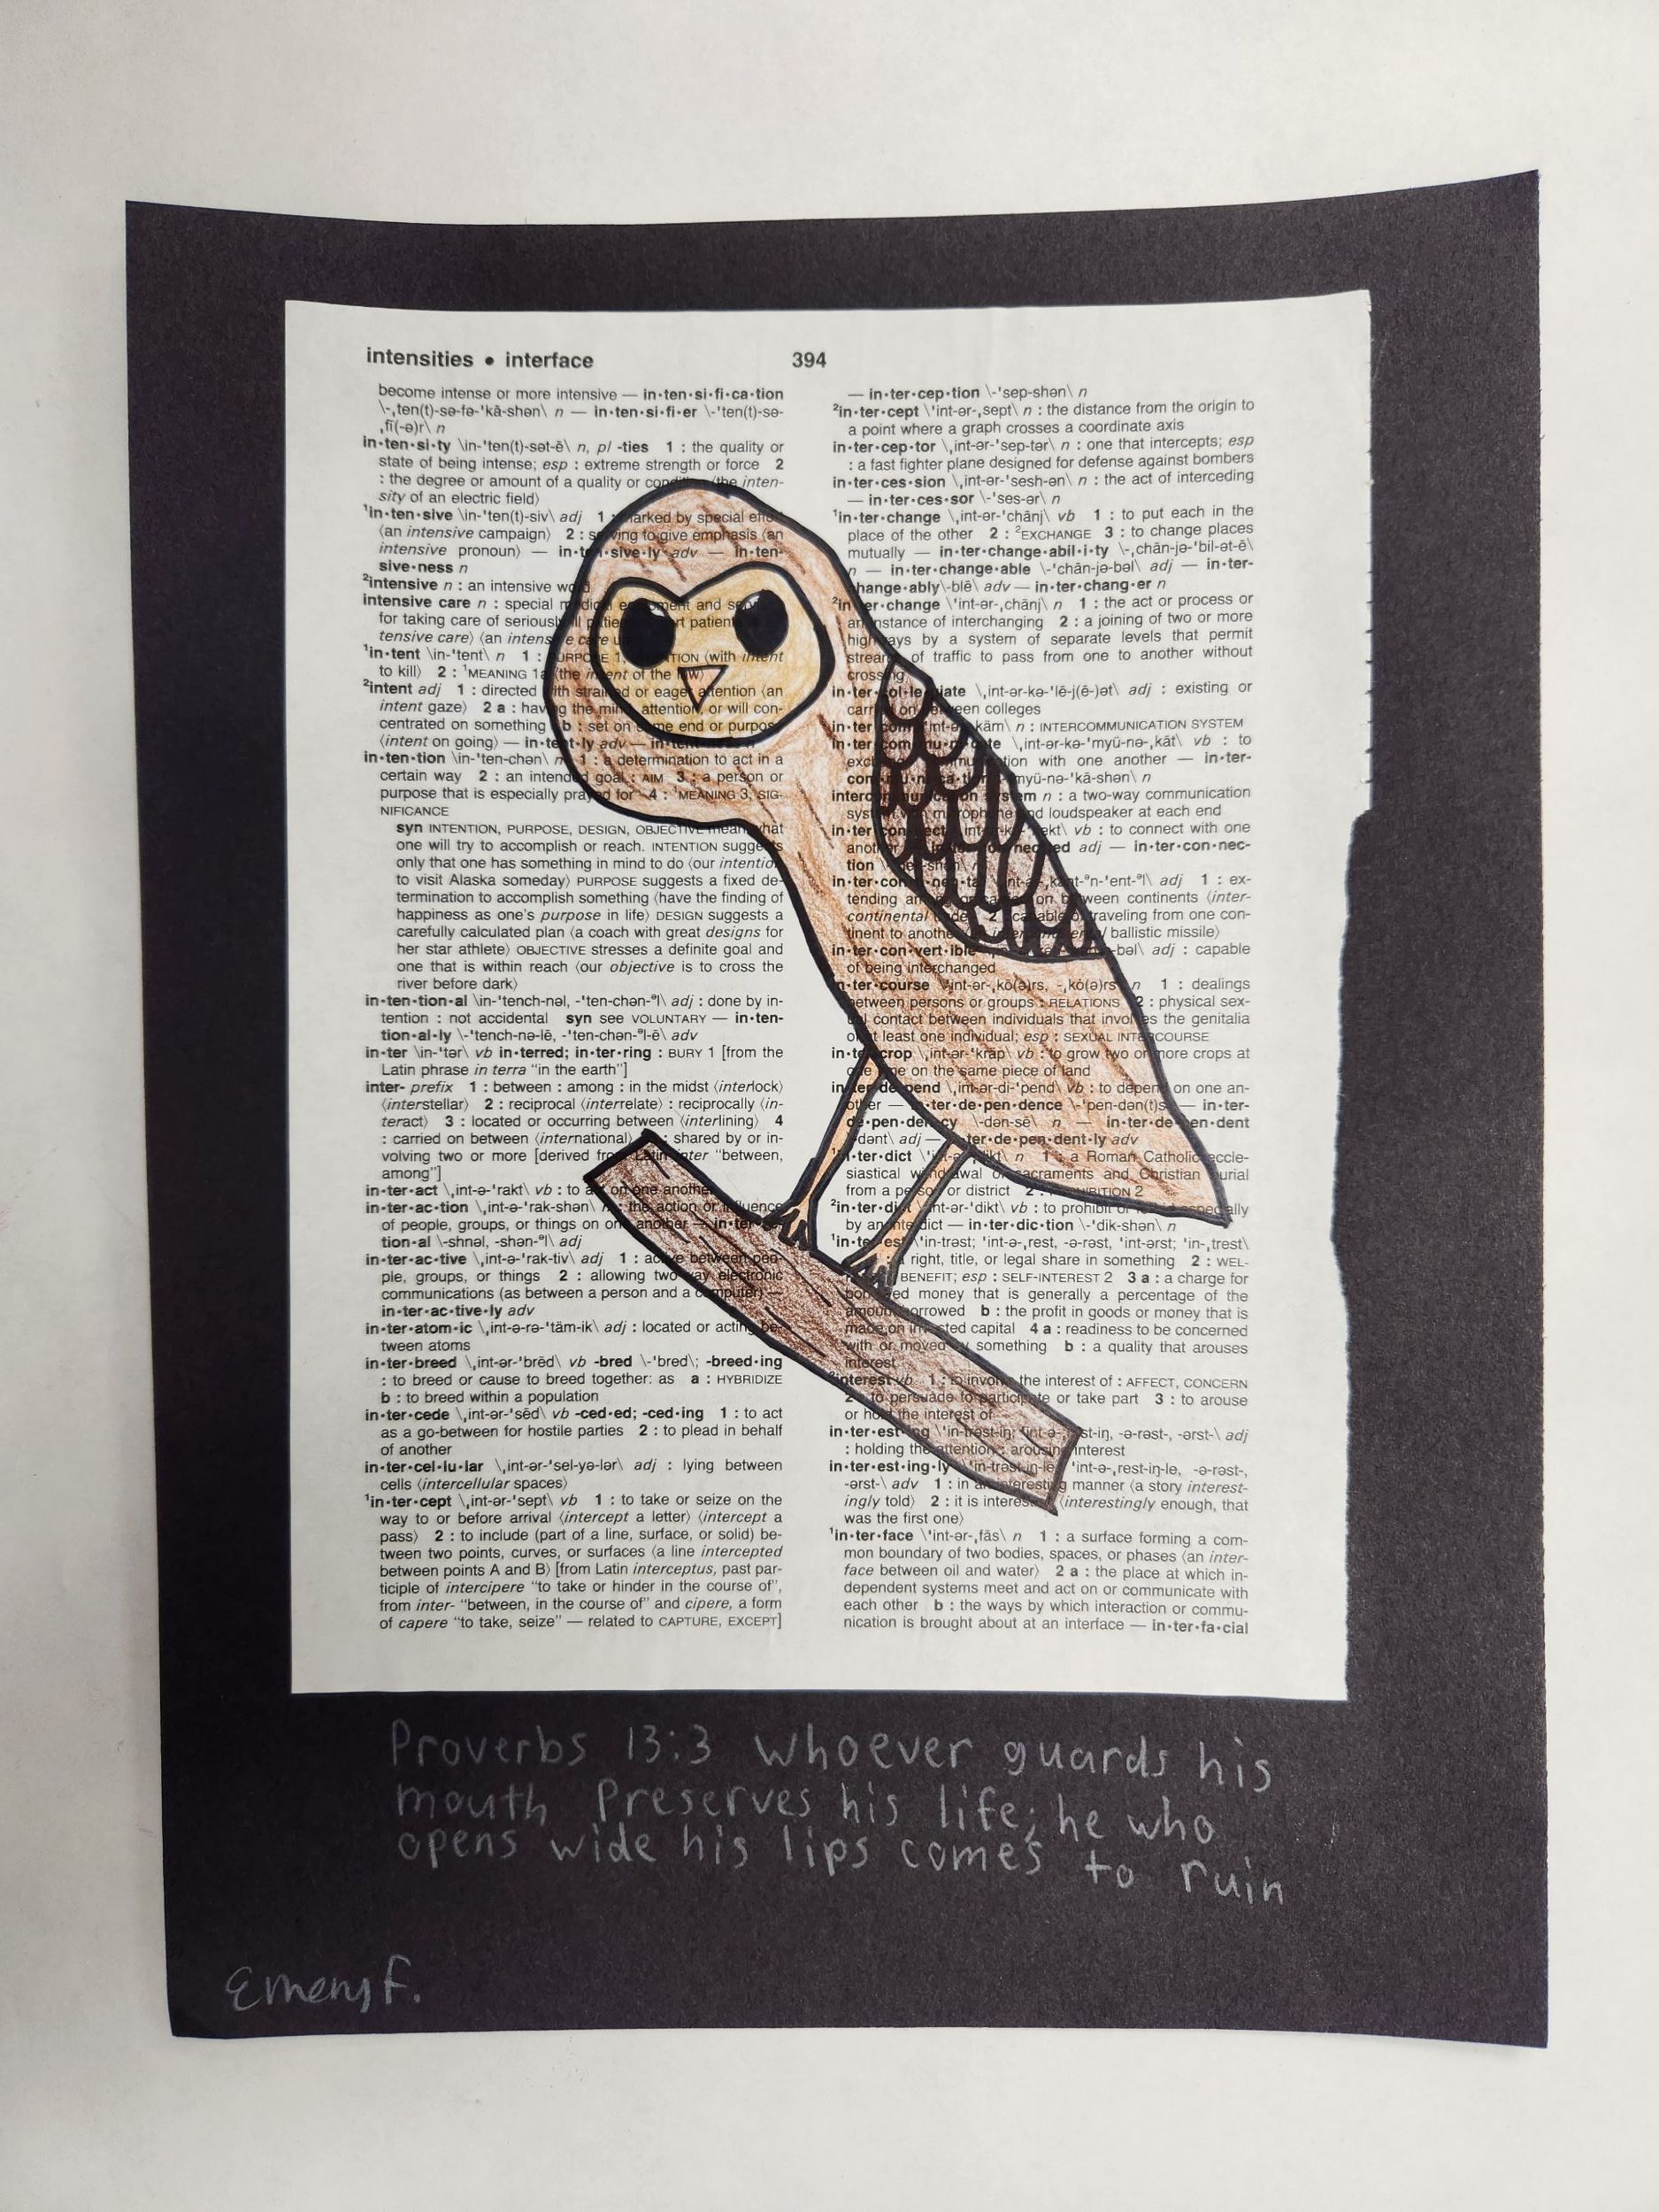 intensities • interface 394
become intense or more intensive — in·ten·si·fi·ca·tion
\-ˌten(t)-sə-fə-ˈkā-shən\ n — in·ten·si·fi·er \-ˈten(t)-sə-
ˌfī(-ə)r\ n
in·ten·si·ty \in-ˈten(t)-sət-ē\ n, pl -ties 1 : the quality or
state of being intense; esp : extreme strength or force 2
: the degree or amount of a quality or condition ⟨the inten-
sity of an electric field⟩
¹in·ten·sive \in-ˈten(t)-siv\ adj 1 : marked by special effort
⟨an intensive campaign⟩ 2 : serving to give emphasis ⟨an
intensive pronoun⟩ — in·ten·sive·ly adv — in·ten-
sive·ness n
²intensive n : an intensive word
intensive care n : special medical equipment and services
for taking care of seriously ill patients ⟨an intensive care unit⟩
¹in·tent \in-ˈtent\ n 1 : PURPOSE 1, INTENTION ⟨with intent
to kill⟩ 2 : ¹MEANING 1a ⟨the intent of the law⟩
²intent adj 1 : directed with strained or eager attention ⟨an
intent gaze⟩ 2 a : having the mind, attention, or will con-
centrated on something b : set on some end or purpose
⟨intent on going⟩ — in·tent·ly adv — in·tent·ness n
in·ten·tion \in-ˈten-chən\ n 1 : a determination to act in a
certain way 2 : an intended goal : AIM 3 : a person or
purpose that is especially prayed for 4 : ¹MEANING 3, SIG-
NIFICANCE
syn INTENTION, PURPOSE, DESIGN, OBJECTIVE mean what
one will try to accomplish or reach. INTENTION suggests
only that one has something in mind to do ⟨our intention
to visit Alaska someday⟩ PURPOSE suggests a fixed de-
termination to accomplish something ⟨have the finding of
happiness as one's purpose in life⟩ DESIGN suggests a
carefully calculated plan ⟨a coach with great designs for
her star athlete⟩ OBJECTIVE stresses a definite goal and
one that is within reach ⟨our objective is to cross the
river before dark⟩
in·ten·tion·al \in-ˈtench-nəl, -ˈten-chən-ᵊl\ adj : done by in-
tention : not accidental syn see VOLUNTARY — in·ten-
tion·al·ly \-ˈtench-nə-lē, -ˈten-chən-ᵊl-ē\ adv
in·ter \in-ˈtər\ vb in·terred; in·ter·ring : BURY 1 [from the
Latin phrase in terra “in the earth”]
inter- prefix 1 : between : among : in the midst ⟨interlock⟩
⟨interstellar⟩ 2 : reciprocal ⟨interrelate⟩ : reciprocally ⟨in-
teract⟩ 3 : located or occurring between ⟨interlining⟩ 4
: carried on between ⟨international⟩ : shared by or in-
volving two or more [derived from Latin inter “between,
among”]
in·ter·act \ˌint-ə-ˈrakt\ vb : to act on one another
in·ter·ac·tion \ˌint-ə-ˈrak-shən\ n : the action or influence
of people, groups, or things on one another — in·ter·ac-
tion·al \-shnəl, -shən-ᵊl\ adj
in·ter·ac·tive \ˌint-ə-ˈrak-tiv\ adj 1 : active between peo-
ple, groups, or things 2 : allowing two-way electronic
communications (as between a person and a computer) —
in·ter·ac·tive·ly adv
in·ter·atom·ic \ˌint-ə-rə-ˈtäm-ik\ adj : located or acting be-
tween atoms
in·ter·breed \ˌint-ər-ˈbrēd\ vb -bred \-ˈbred\; -breed·ing
: to breed or cause to breed together: as a : HYBRIDIZE
b : to breed within a population
in·ter·cede \ˌint-ər-ˈsēd\ vb -ced·ed; -ced·ing 1 : to act
as a go-between for hostile parties 2 : to plead in behalf
of another
in·ter·cel·lu·lar \ˌint-ər-ˈsel-yə-lər\ adj : lying between
cells ⟨intercellular spaces⟩
¹in·ter·cept \ˌint-ər-ˈsept\ vb 1 : to take or seize on the
way to or before arrival ⟨intercept a letter⟩ ⟨intercept a
pass⟩ 2 : to include (part of a line, surface, or solid) be-
tween two points, curves, or surfaces ⟨a line intercepted
between points A and B⟩ [from Latin interceptus, past par-
ticiple of intercipere “to take or hinder in the course of”,
from inter- “between, in the course of” and cipere, a form
of capere “to take, seize” — related to CAPTURE, EXCEPT]
— in·ter·cep·tion \-ˈsep-shən\ n
²in·ter·cept \ˈint-ər-ˌsept\ n : the distance from the origin to
a point where a graph crosses a coordinate axis
in·ter·cep·tor \ˌint-ər-ˈsep-tər\ n : one that intercepts; esp
: a fast fighter plane designed for defense against bombers
in·ter·ces·sion \ˌint-ər-ˈsesh-ən\ n : the act of interceding
— in·ter·ces·sor \-ˈses-ər\ n
¹in·ter·change \ˌint-ər-ˈchānj\ vb 1 : to put each in the
place of the other 2 : ²EXCHANGE 3 : to change places
mutually — in·ter·change·abil·i·ty \-ˌchān-jə-ˈbil-ət-ē\
n — in·ter·change·able \-ˈchān-jə-bəl\ adj — in·ter-
change·ably \-blē\ adv — in·ter·chang·er n
²in·ter·change \ˈint-ər-ˌchānj\ n 1 : the act or process or
an instance of interchanging 2 : a joining of two or more
highways by a system of separate levels that permit
streams of traffic to pass from one to another without
crossing
in·ter·col·le·giate \ˌint-ər-kə-ˈlē-j(ē-)ət\ adj : existing or
carried on between colleges
in·ter·com \ˈint-ər-ˌkäm\ n : INTERCOMMUNICATION SYSTEM
in·ter·com·mu·ni·cate \ˌint-ər-kə-ˈmyü-nə-ˌkāt\ vb : to
exchange communication with one another — in·ter-
com·mu·ni·ca·tion \-ˌmyü-nə-ˈkā-shən\ n
intercommunication system n : a two-way communication
system with microphone and loudspeaker at each end
in·ter·con·nect \ˌint-ər-kə-ˈnekt\ vb : to connect with one
another — in·ter·con·nect·ed adj — in·ter·con·nec-
tion \-ˈnek-shən\ n
in·ter·con·ti·nen·tal \ˌint-ər-ˌkänt-ᵊn-ˈent-ᵊl\ adj 1 : ex-
tending among or carried on between continents ⟨inter-
continental trade⟩ 2 : capable of traveling from one con-
tinent to another ⟨intercontinental ballistic missile⟩
in·ter·con·vert·ible \-bəl\ adj : capable
of being interchanged
in·ter·course \ˈint-ər-ˌkō(ə)rs, -ˌkȯ(ə)rs\ n 1 : dealings
between persons or groups : RELATIONS 2 : physical sex-
ual contact between individuals that involves the genitalia
of at least one individual; esp : SEXUAL INTERCOURSE
in·ter·crop \ˌint-ər-ˈkräp\ vb : to grow two or more crops at
one time on the same piece of land
in·ter·de·pend \ˌint-ər-di-ˈpend\ vb : to depend on one an-
other — in·ter·de·pen·dence \-ˈpen-dən(t)s\ n — in·ter-
de·pen·den·cy \-dən-sē\ n — in·ter·de·pen·dent
\-dənt\ adj — in·ter·de·pen·dent·ly adv
¹in·ter·dict \ˈint-ər-ˌdikt\ n 1 : a Roman Catholic eccle-
siastical withdrawal of sacraments and Christian burial
from a person or district 2 : PROHIBITION 2
²in·ter·dict \ˌint-ər-ˈdikt\ vb : to prohibit or forbid especially
by an interdict — in·ter·dic·tion \-ˈdik-shən\ n
¹in·ter·est \ˈin-trəst; ˈint-ə-ˌrest, -ə-rəst, ˈint-ərst; ˈin-ˌtrest\
right, title, or legal share in something 2 : WEL-
BENEFIT; esp : SELF-INTEREST 2 3 a : a charge for
borrowed money that is generally a percentage of the
amount borrowed b : the profit in goods or money that is
made on invested capital 4 a : readiness to be concerned
with or moved by something b : a quality that arouses
interest
²interest vb 1 : to involve the interest of : AFFECT, CONCERN
2 : to persuade to participate or take part 3 : to arouse
or hold the interest of
in·ter·est·ing \ˈin-trəst-iŋ; ˈint-ə-ˌrest-iŋ, -ə-rəst-, -ərst-\ adj
: holding the attention : arousing interest
in·ter·est·ing·ly \ˈin-trəst-iŋ-lē, ˈint-ə-ˌrest-iŋ-le, -ə-rəst-,
-ərst-\ adv 1 : in an interesting manner ⟨a story interest-
ingly told⟩ 2 : it is interesting ⟨interestingly enough, that
was the first one⟩
¹in·ter·face \ˈint-ər-ˌfās\ n 1 : a surface forming a com-
mon boundary of two bodies, spaces, or phases ⟨an inter-
face between oil and water⟩ 2 a : the place at which in-
dependent systems meet and act on or communicate with
each other b : the ways by which interaction or commu-
nication is brought about at an interface — in·ter·fa·cial
Proverbs 13:3 whoever guards his
mouth Preserves his life; he who
opens wide his lips comes to ruin
Emery F.